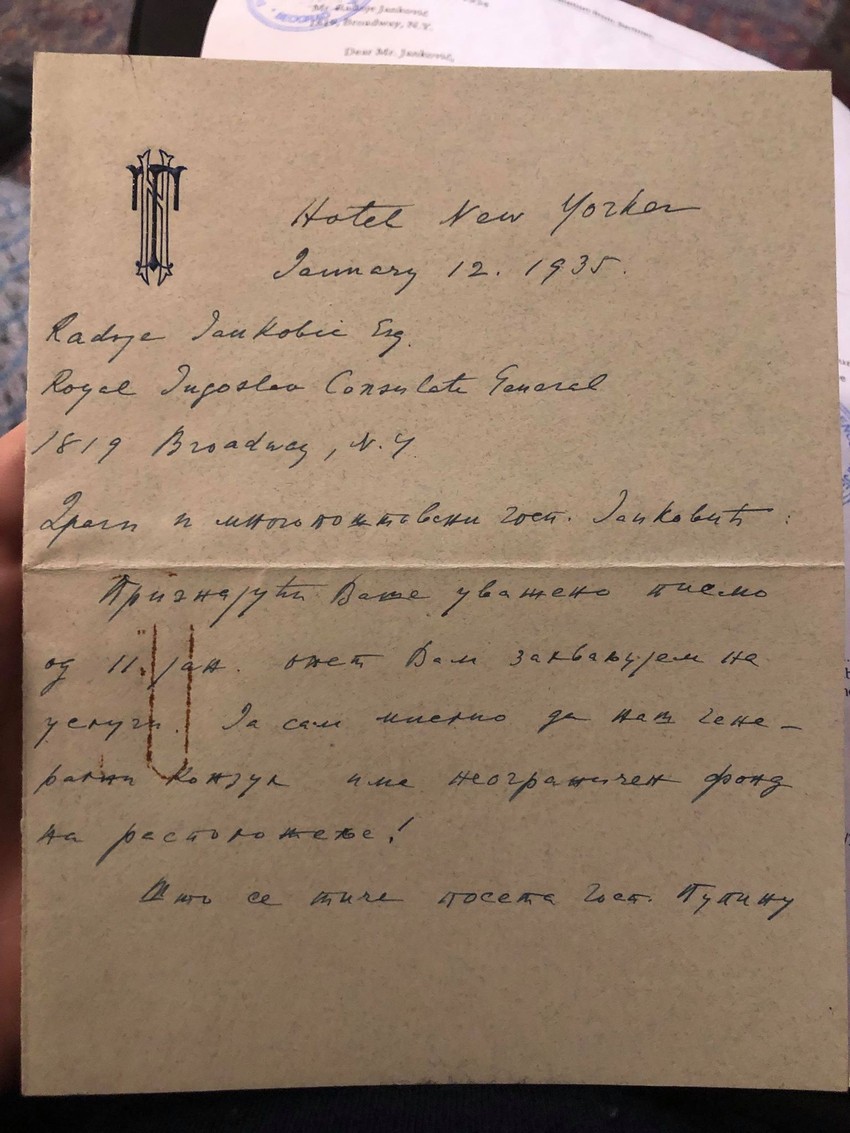 Mr. Radoje Janković
1819, Broadway, N.Y.
Dear Mr. Janković,
Hotel New Yorker
January 12. 1935.
Radoje Jankovic Esq.
Royal Jugoslav Consulate General
1819 Broadway, N.Y.
Драги и многопоштовани госп. Јанковић:
Признајући Ваше уважено писмо
од 11. јан. опет Вам захваљујем на
услуги. Ја сам мислио да наш гене-
рални Конзул има неограничен фонд
на расположење!
Што се тиче посета госп. Пупину